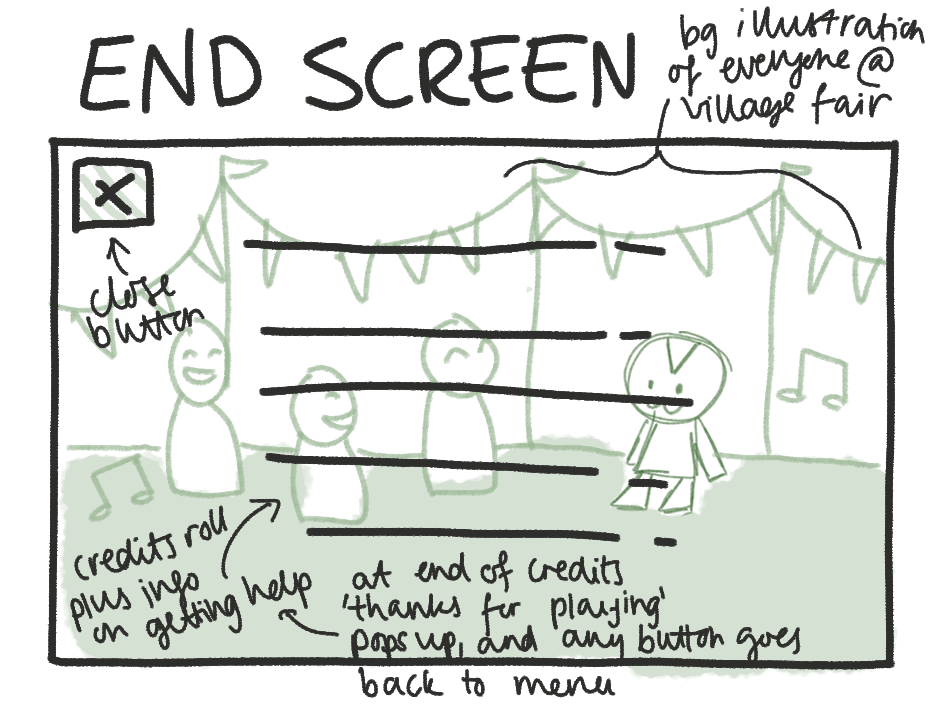 END SCREEN
bg illustration
of everyone @
village fair
X
close
button
credits roll
plus info
on getting help
at end of credits
'thanks for playing'
pops up, and any button goes
back to menu